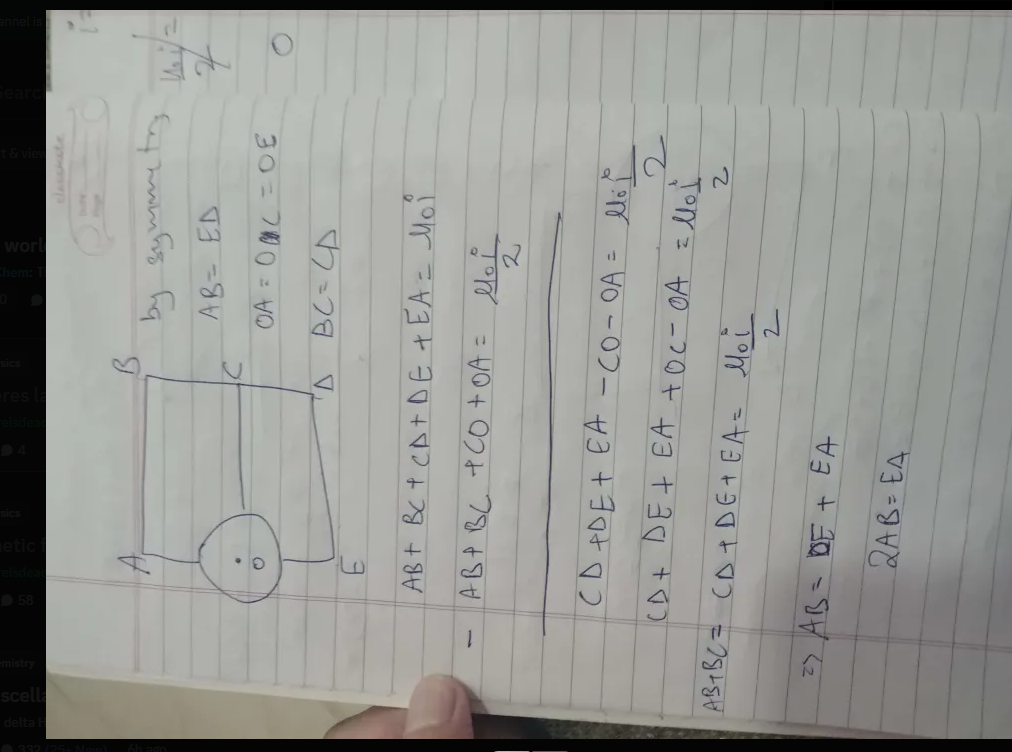 by symmetry
AB = ED
OA = OC = OE
BC = CD
A
B
C
D
E
O
AB + BC + CD + DE + EA = μ₀i
- AB + BC + CO + OA = μ₀i/2
CD + DE + EA - CO - OA = μ₀i/2
CD + DE + EA + OC - OA = μ₀i/2
AB+BC = CD + DE + EA = μ₀i/2
=> AB = DE + EA
2AB = EA
μ₀i/2 =
O
i =
classmate
Date
Page